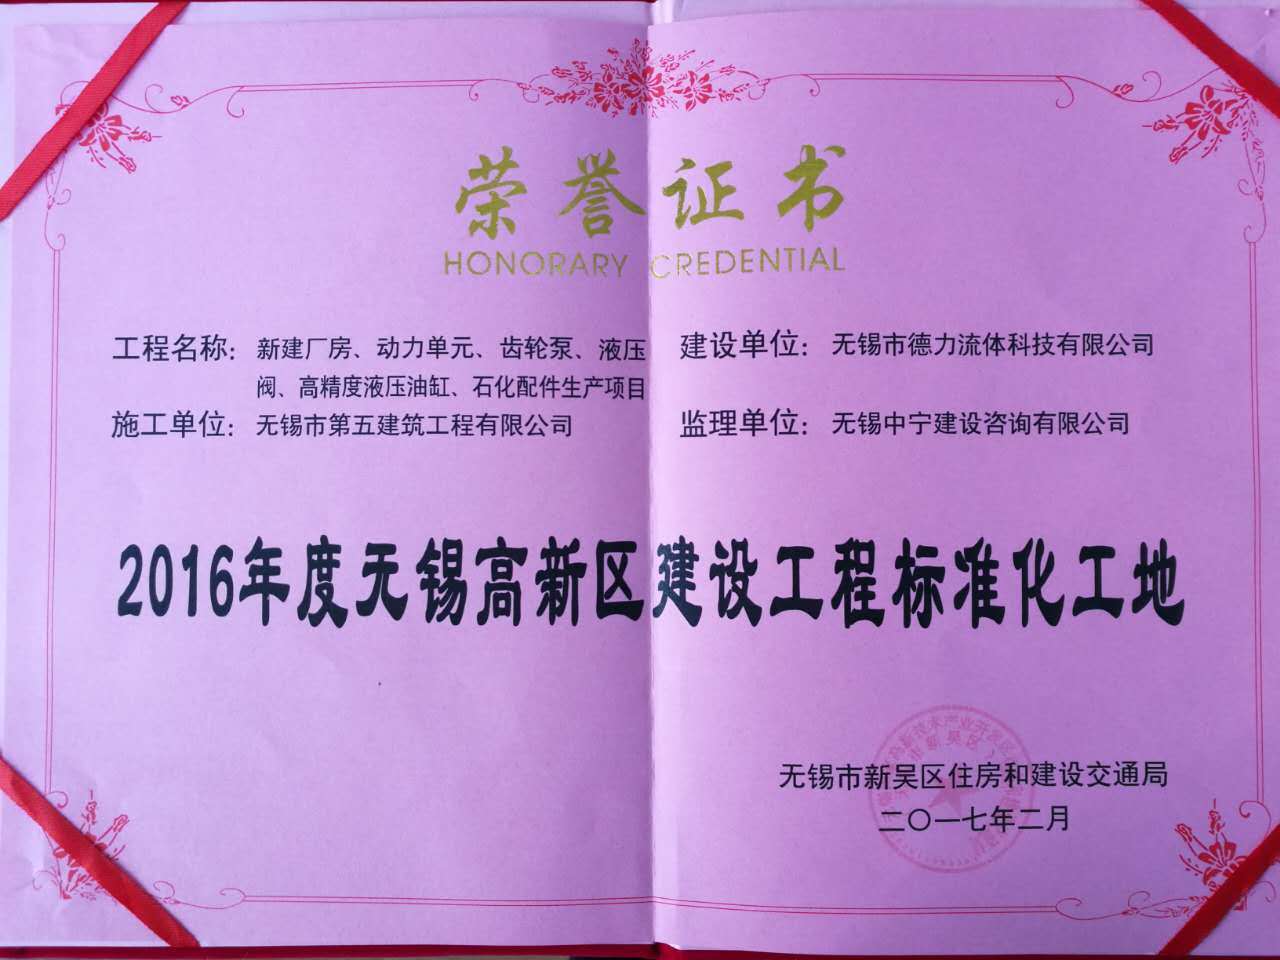 荣誉证书
HONORARY CREDENTIAL
工程名称：新建厂房、动力单元、齿轮泵、液压
阀、高精度液压油缸、石化配件生产项目
建设单位：无锡市德力流体科技有限公司
施工单位：无锡市第五建筑工程有限公司
监理单位：无锡中宁建设咨询有限公司
2016年度无锡高新区建设工程标准化工地
无锡市新吴区住房和建设交通局
二〇一七年二月